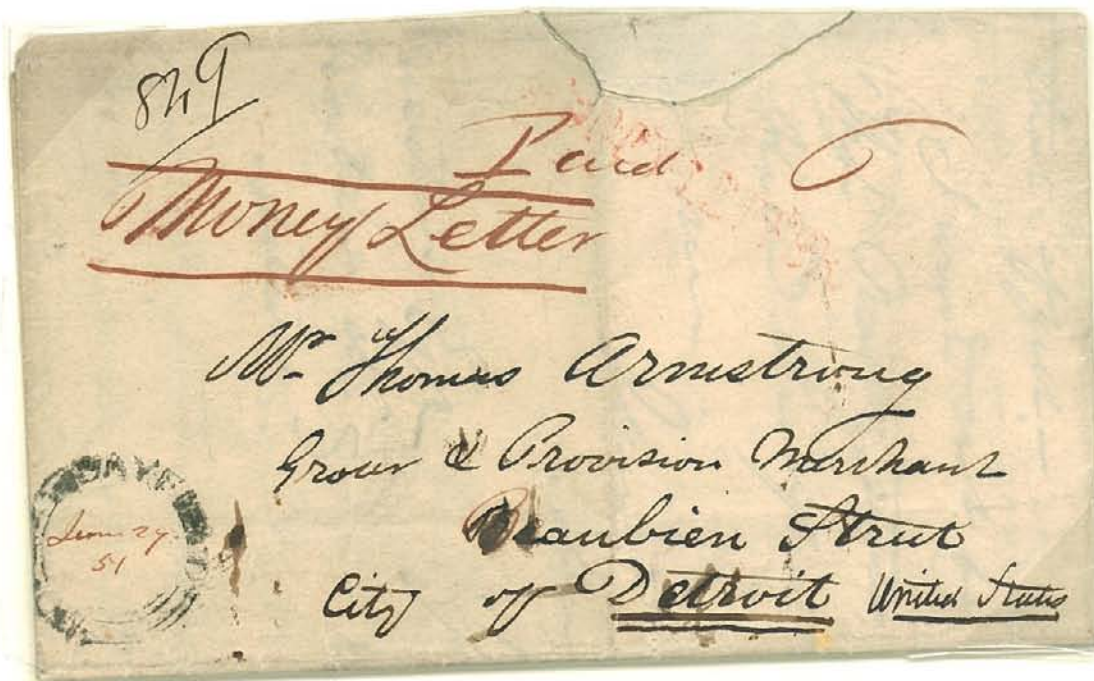 849
Paid
Money Letter
Mr Thomas Armstrong
Grocer & Provision Merchant
Beaubien Street
City of Detroit United States
51